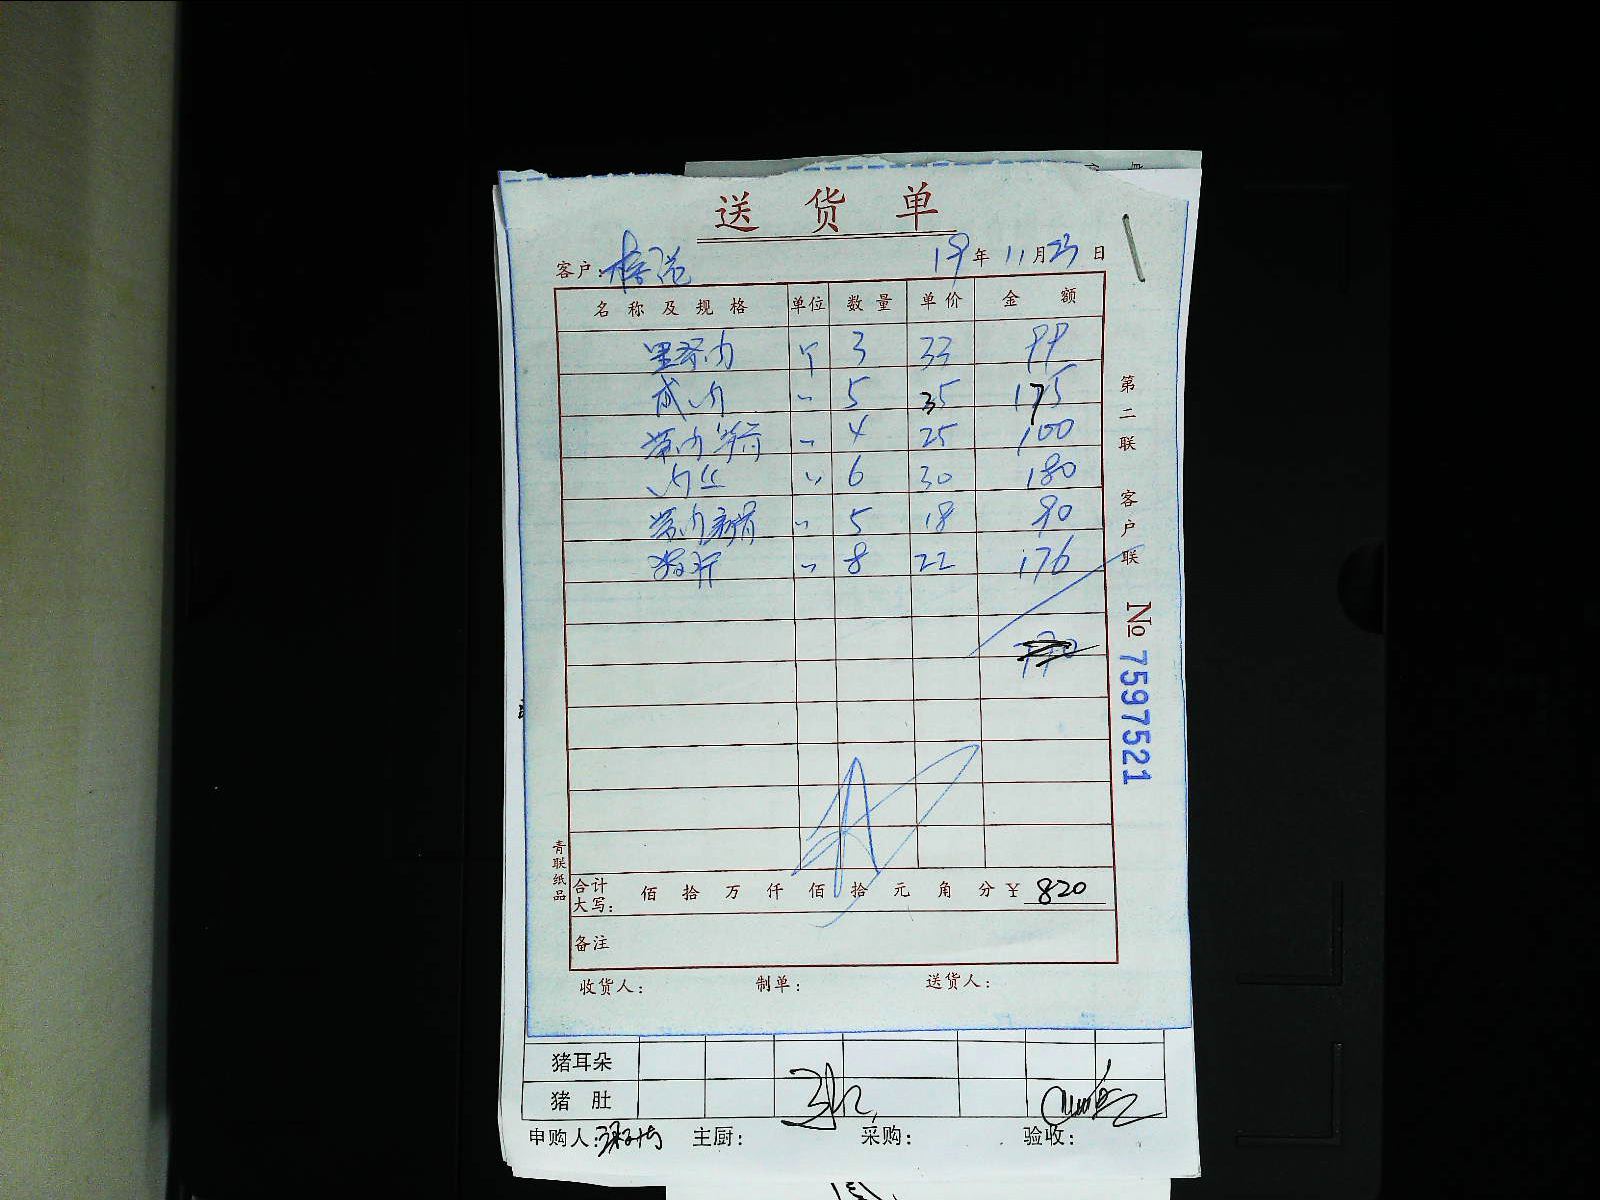 送货单
客户: 19年11月23日
名称及规格 单位 数量 单价 金额
里脊肉 个 3 33 99
肉 〃 5 35 175
带肉 〃 4 25 100
肉丝 〃 6 30 180
带肉 骨 〃 5 18 90
猪肝 〃 8 22 176
合计大写: 佰 拾 万 仟 佰 拾 元 角 分 ¥ 820
备注
收货人: 制单: 送货人:
第二联 客户联
№ 7597521
青联纸品
猪耳朵
猪肚
申购人: 主厨: 采购: 验收: